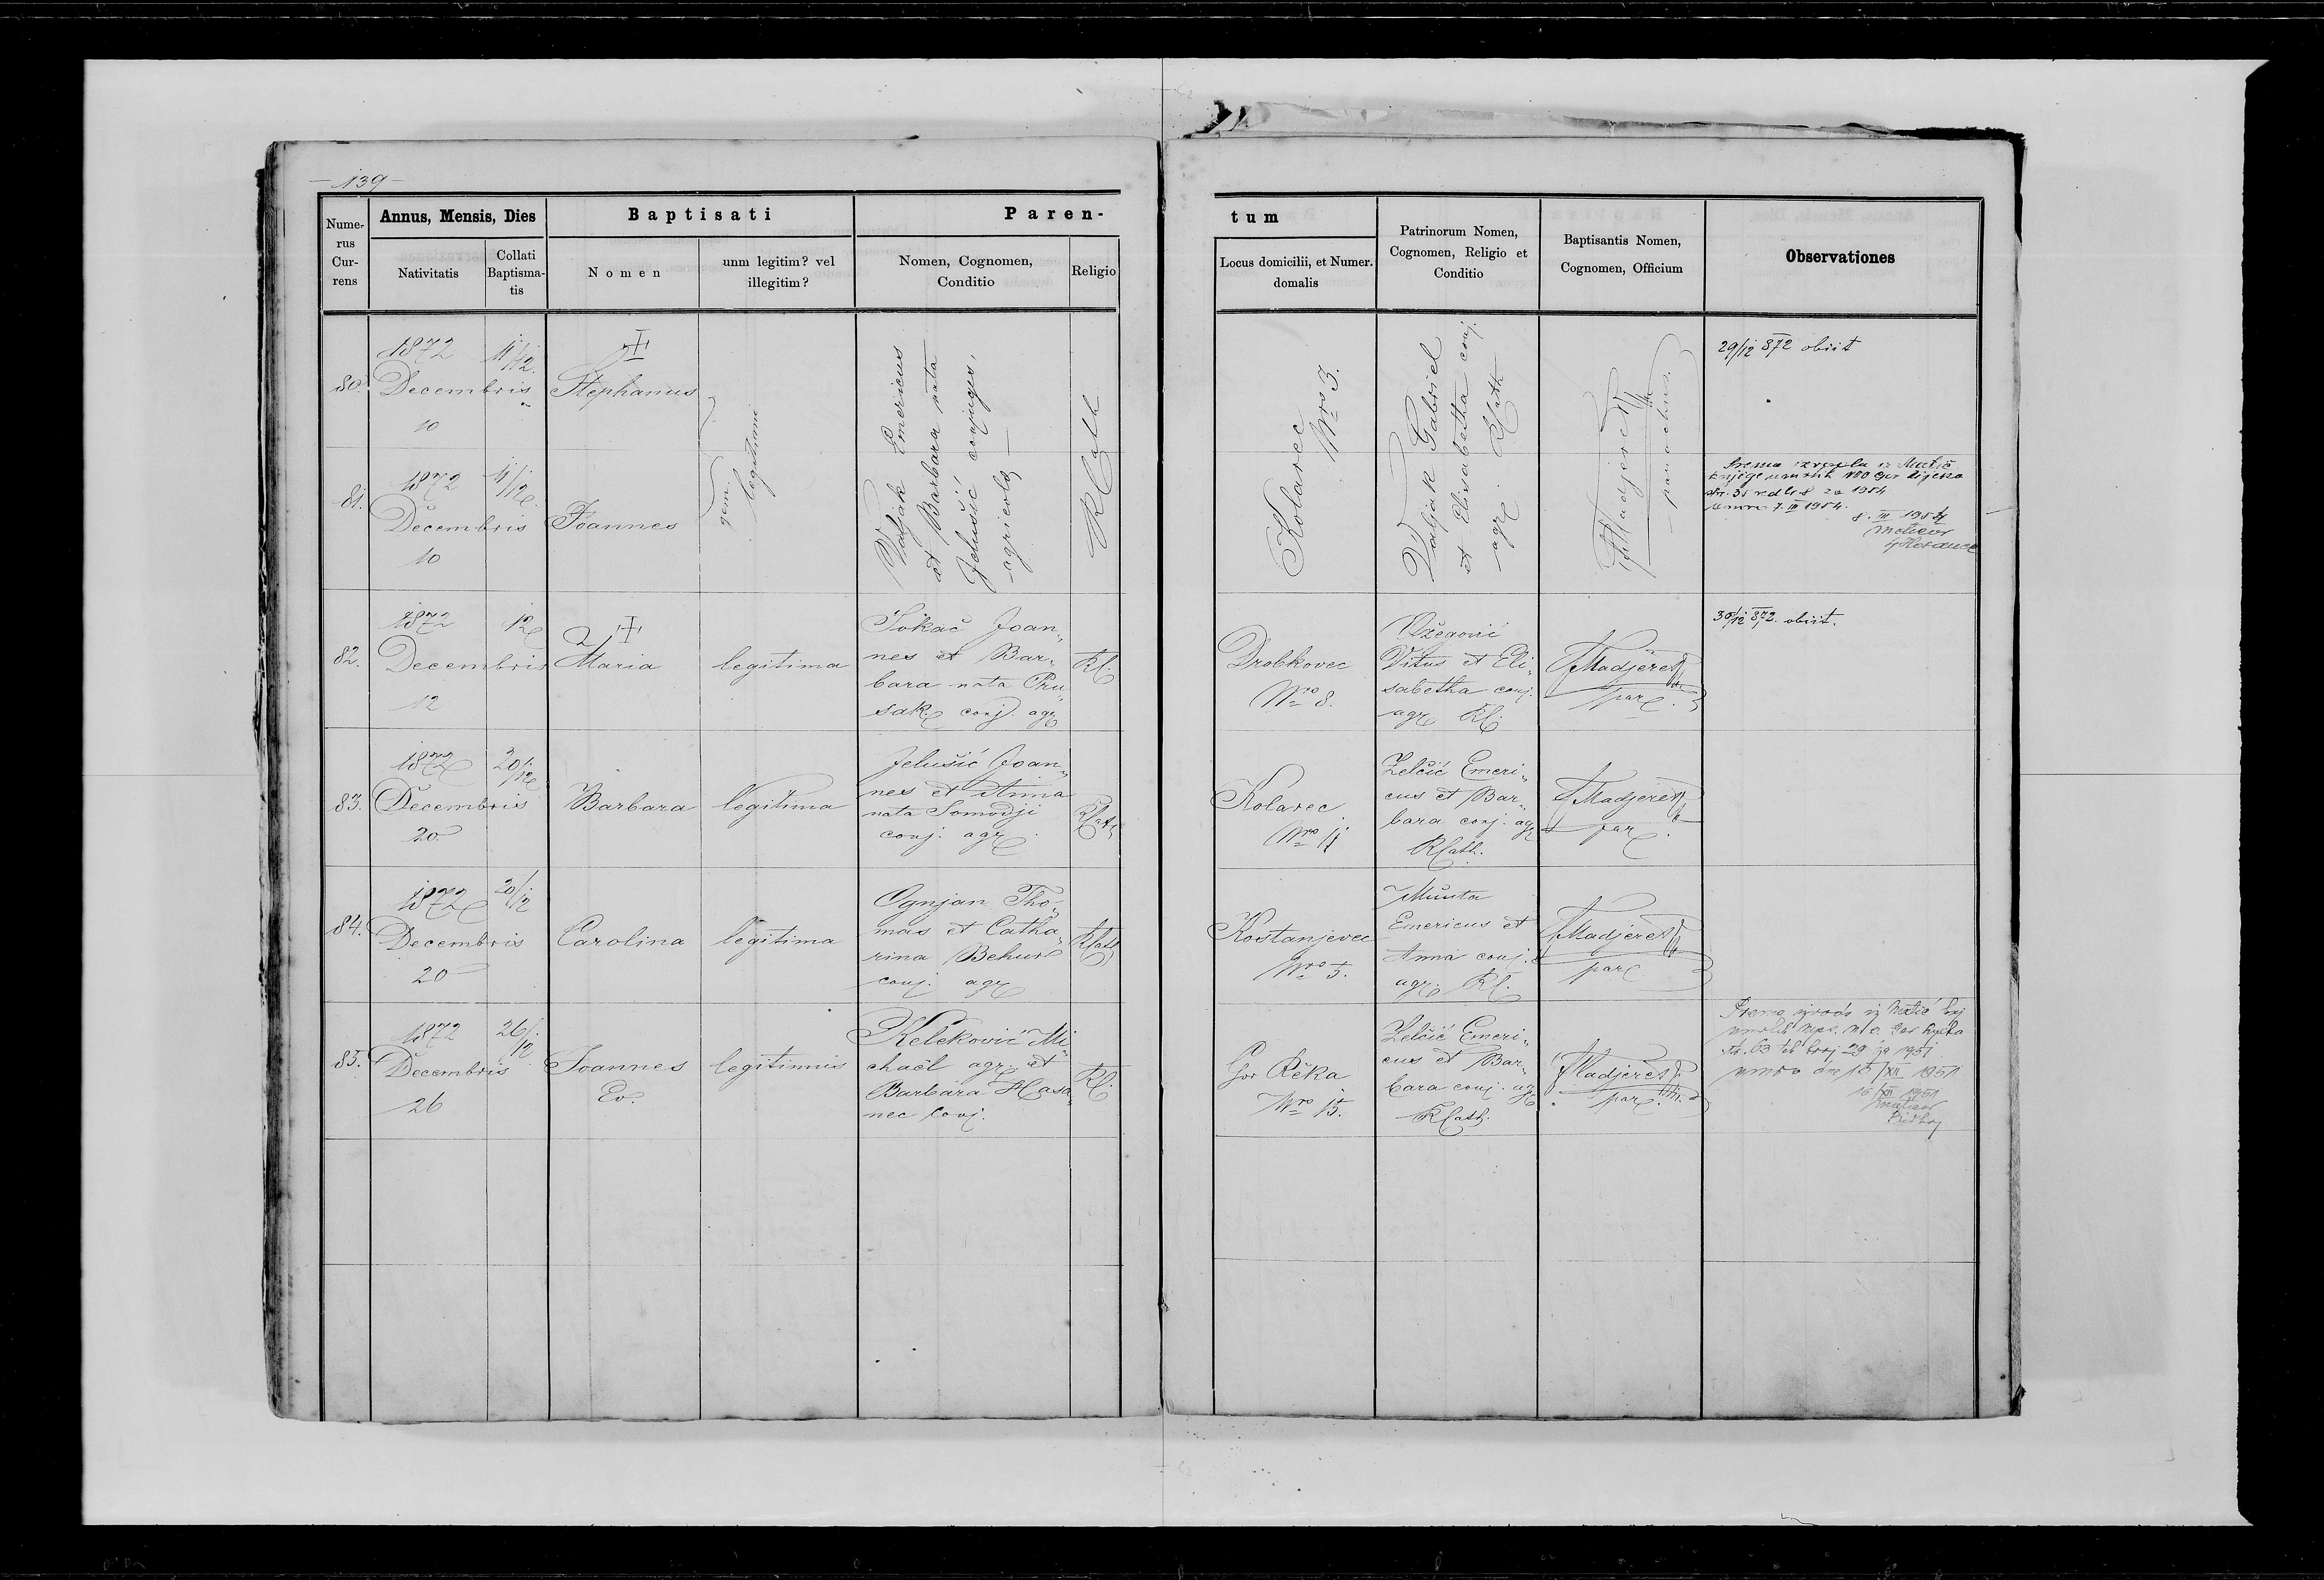 — 139 —
Nume-
rus
Cur-
rens
Annus, Mensis, Dies
Nativitatis
Collati
Baptisma-
tis
Baptisati
Nomen
unm legitim? vel
illegitim?
Paren-
Nomen, Cognomen,
Conditio
Religio
tum
Locus domicilii, et Numer.
domalis
Patrinorum Nomen,
Cognomen, Religio et
Conditio
Baptisantis Nomen,
Cognomen, Officium
Observationes
80.
1872
Decembris
10
11/12.
Stephanus
29/12 872 obiit
81.
1872
Decembris
10
11/12
Joannes
gem.
legitimi
Valjak Emericus
et Barbara nata
Jelušić conjuges,
agricolæ —
RCath
Kolarec
Nro 3.
Valjak Gabriel
et Elisabetha conj.
agr. RCath
Madjereć
parochus.
knjige umrlih NOO Gor Rijeka
str. 35 red br 8 za 1954
umro 7. III 1954.
8. III 1954
Matičar
82.
1872
Decembris
12
12
Maria
legitima
Sokač Joan„
nes et Bar„
bara nata Pru„
sak conj. agr
RC.
Drobkovec
Nro 8.
Ožegović
Vitus et Eli„
sabetha conj.
agr RC.
Madjereć
par.
30/12 872. obiit.
83.
1872
Decembris
20
20/12
Barbara
legitima
Jelušić Joan„
nes et Anna
nata Somodji
conj. agr
RCath
Kolarec
Nro 11
Zelčić Emeri„
cus et Bar„
bara conj. agr
RCath.
Madjereć
par.
84.
1872
Decembris
20
20/12
Carolina
legitima
Ognjan Tho„
mas et Catha„
rina Behur
conj. agr
RCath
Kostanjevec
Nro 5.
Emericus et
Anna conj.
agr. RC.
Madjereć
par
85.
1872
Decembris
26
26/12
Joannes
Ev.
legitimus
Keleković Mi„
chaël agr. et
Barbara Hasa„
nec conj.
RC.
Gor Rěka
Nro 15.
Zelčić Emeri„
cus et Bar„
bara conj. agr
RCath.
Madjereć
par.
str. 63 tek broj 29 za 1951
umro dne 15/XII 1951
15/XII 1951
matičar